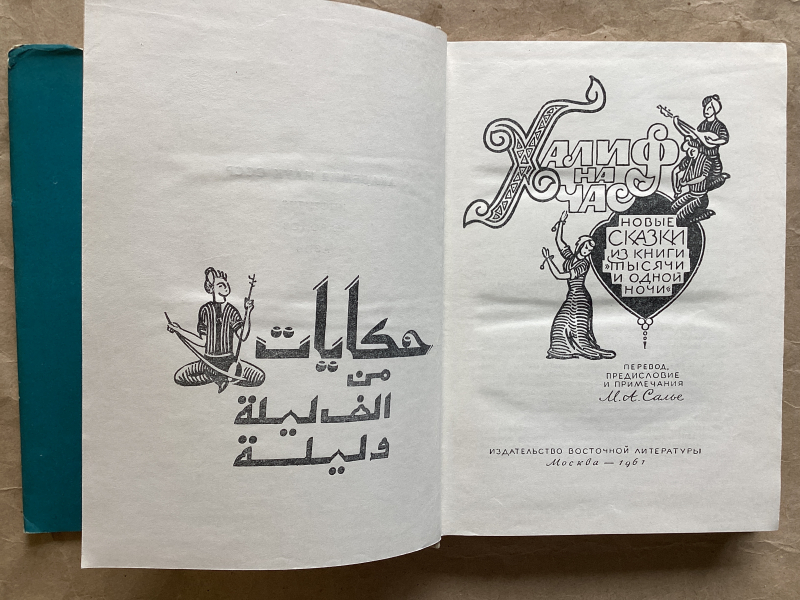 حكايات
من
الف ليلة
وليلة
Халиф
на
час
новые
сказки
из книги
"тысячи
и одной
ночи"
перевод,
предисловие
и примечания
М. А. Салье
издательство восточной литературы
Москва — 1961